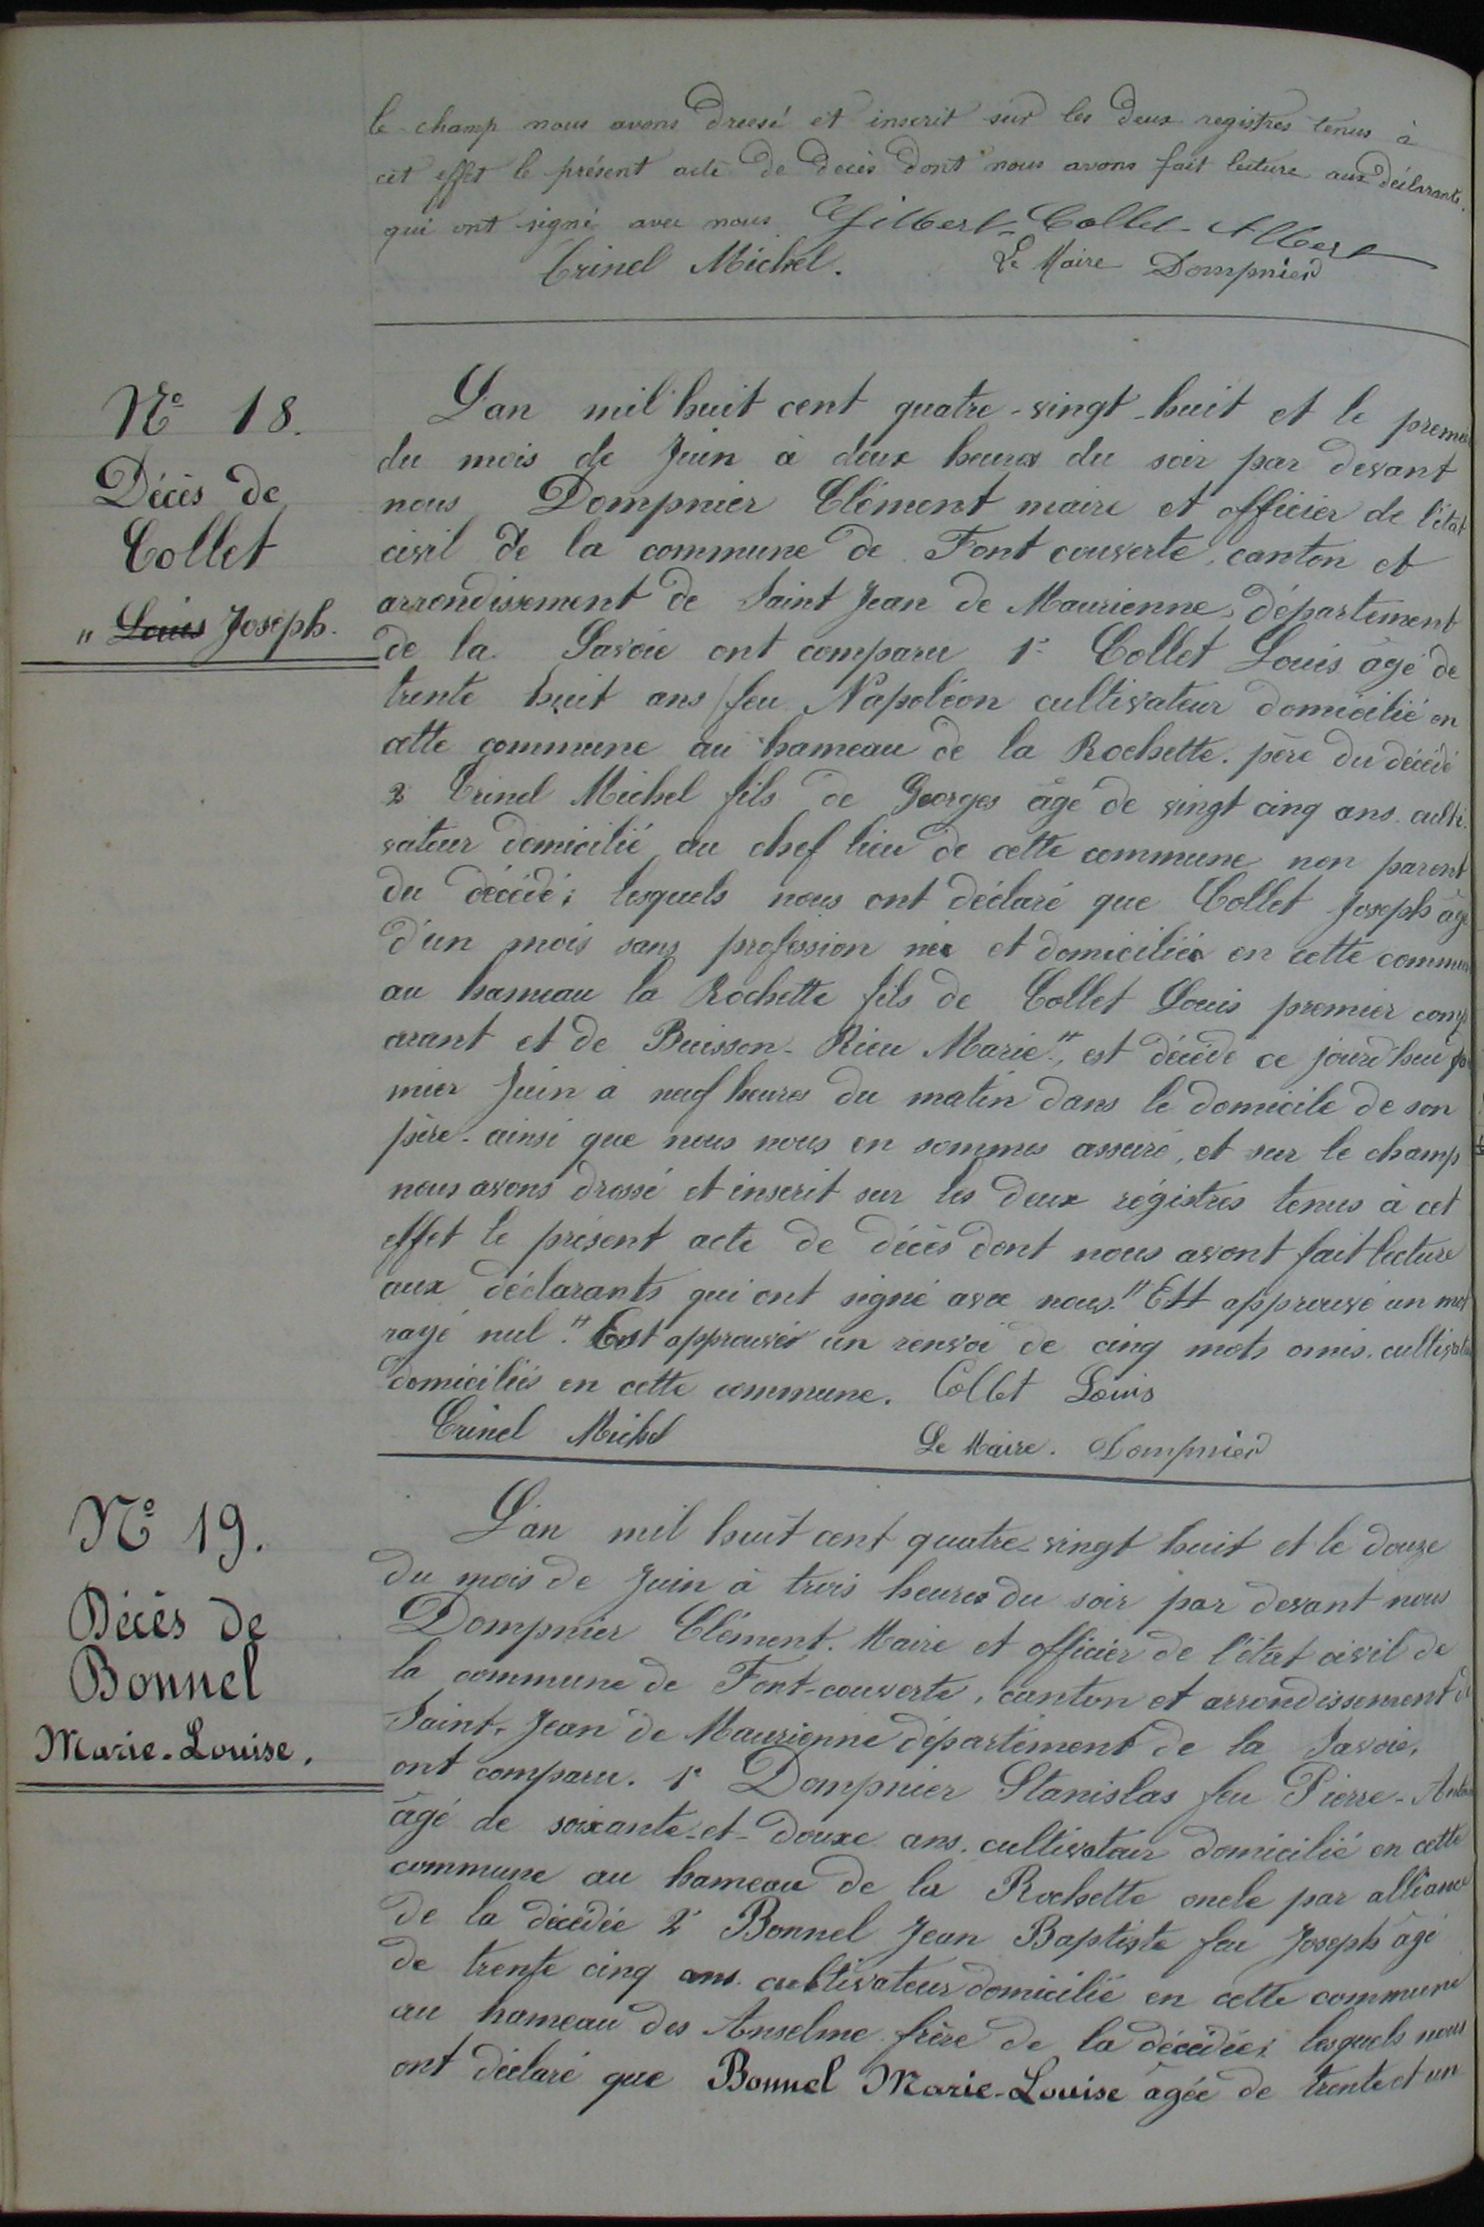 le champ nous avons dressé et inscrit sur les deux registres tenus à
cet effet le présent acte de décès dont nous avons fait lecture aux déclarants.
qui ont signé avec nous Gilbert-Collet-Albert
Crinel Michel. Le Maire Dompnier
Nº 18.
Décès de
Collet
" Louis Joseph.
L'an mil huit cent quatre-vingt-huit et le premier
du mois de Juin à deux heures du soir par devant
nous Dompnier Clément maire et officier de l'état
civil de la commune de Font couverte, canton et
arrondissement de Saint Jean de Maurienne, département
de la Savoie ont comparu 1º Collet Louis âgé de
trente huit ans feu Napoléon cultivateur domicilié en
cette commune au hameau de la Rochette. père du décédé
2º Crinel Michel fils de Georges âgé de vingt cinq ans culti-
vateur domicilié au chef lieu de cette commune non parent
du décédé; lesquels nous ont déclaré que Collet Joseph âgé
d'un mois sans profession né et domicilié en cette commune
au hameau la Rochette fils de Collet Louis premier comp
arant et de Buisson-Rieu Marie ", est décédé ce jourd'hui pre
mier Juin à neuf heures du matin dans le domicile de son
père. ainsi que nous nous en sommes assuré, et sur le champ
nous avons dressé et inscrit sur les deux régistres tenus à cet
effet le présent acte de décès dont nous avont fait lecture
aux déclarants qui ont signé avec nous. " Est approuvé un mot
rayé nul. " Est approuvé un renvoi de cinq mots omis. cultivateurs
domiciliés en cette commune. Collet Louis
Crinel Michel Le Maire. Dompnier
Nº 19.
Décès de
Bonnel
Marie-Louise.
L'an mil huit cent quatre-vingt huit et le douze
du mois de Juin à trois heures du soir par devant nous
Dompnier Clément. Maire et officier de l'état civil de
la commune de Font-couverte, canton et arrondissement de
Saint-Jean de Maurienne département de la Savoie,
ont comparu. 1º Dompnier Stanislas feu Pierre-Antoine
âgé de soixante-et-douze ans. cultivateur domicilié en cette
commune au hameau de la Rochette oncle par alliance
de la décédée 2º Bonnel Jean Baptiste feu Joseph âgé
de trente cinq ans cultivateur domicilié en cette commune
au hameau des Anselme frère de la décédée; lesquels nous
ont déclaré que Bonnel Marie-Louise âgée de trente et un